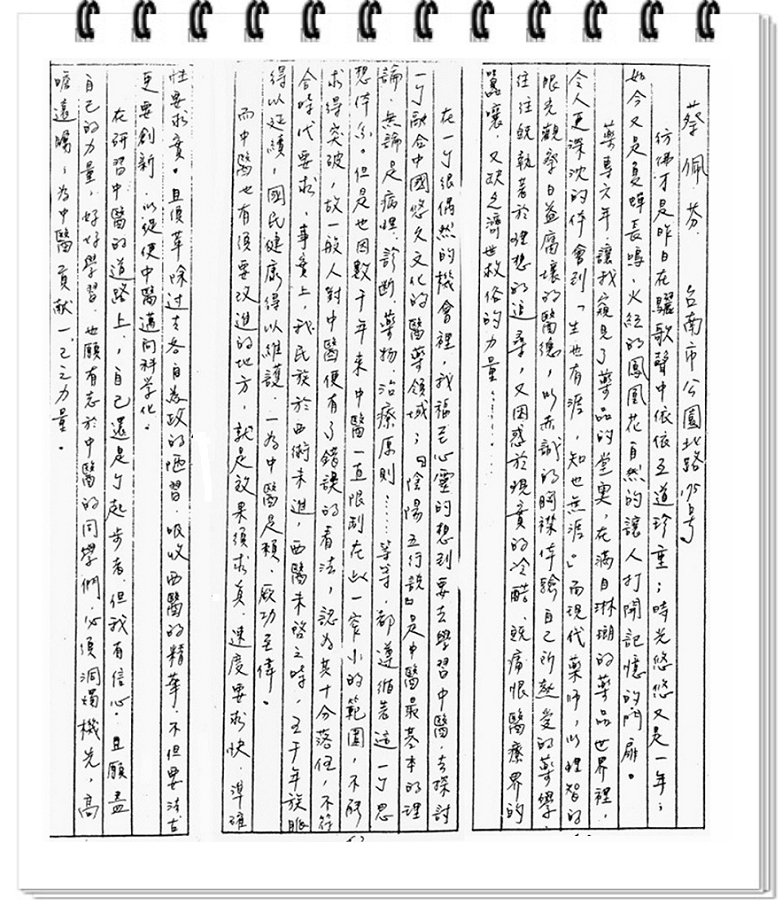 蔡佩芬 台南市公園北路95号
彷彿才是昨日在驪歌聲中依依互道珍重；時光悠悠又是一年；
如今又是夏蟬長鳴，火紅的鳳凰花自然的讓人打開記憶的門扉。
藥專六年，讓我窺見了藥品的堂奧，在滿目琳瑯的藥品世界裡，
令人更深沈的体會到「生也有涯，知也無涯。」而現代藥师，以理智的
眼光觀察日益腐壞的醫德，以赤誠的胸襟体驗自己所熱愛的藥學，
往往既執著於理想的追尋，又困惑於現實的冷酷、既痛恨醫療界的
囂嚷，又缺乏濟世救俗的力量……
在一個很偶然的機會裡，我福至心靈的想到要去學習中醫，去探討
一個融合中國悠久文化的醫藥領域；「陰陽五行說」是中醫最基本的理
論，無論是病理、診斷、藥物、治療原則……等等，都遵循著這一個思
想体系。但是也因數千年來中醫一直限制在此一窄小的範圍，不能
求得突破，故一般人對中醫便有了錯誤的看法，認為其十分落伍，不符
合時代要求，事實上，我民族於西術未進，西醫未啓之時，五千年族脈
得以延續，國民健康得以維護，一為中醫是賴，厥功至偉。
而中醫也有須要改進的地方，就是效果須求真，速度要求快，準確
性要求實。且須革除过去各自為政的陋習，吸收西醫的精華，不但要法古
更要創新，以促使中醫邁向科学化。
在研習中醫的道路上，自己還是個起步者，但我有信心，且願盡
自己的力量，好好學習，也願有志於中醫的同學們，必須洞燭機先，高
瞻遠矚，為中醫貢献一己之力量。